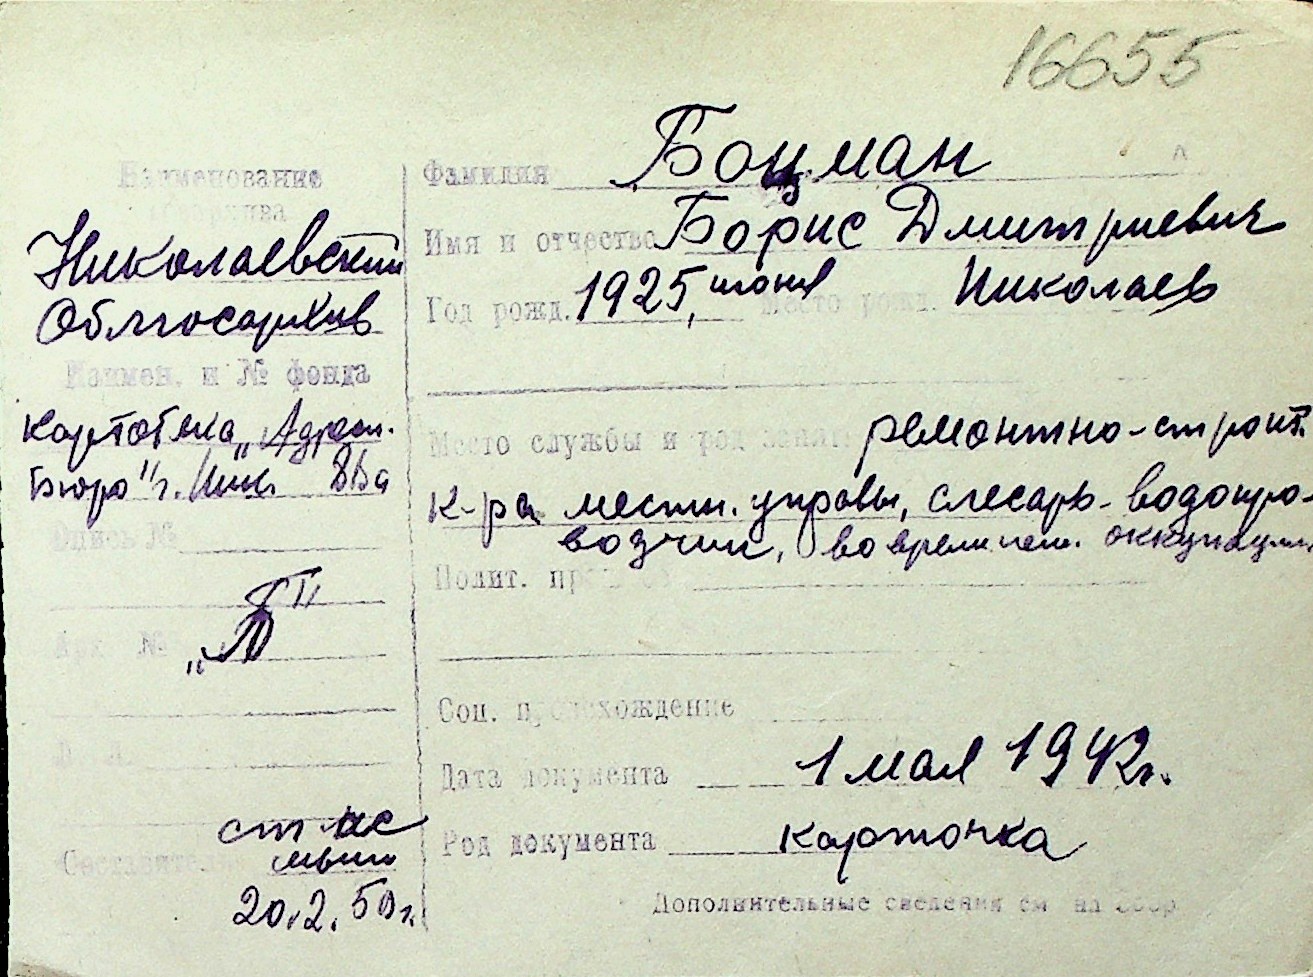 16655
Наименование
Николаевский
Облгосархив
Наимен. и № фонда
картотека „Адресн.
Бюро" г.
Опись №
"
Арх. №
„
20.2.50 г.
Фамилия Боцман
Имя и отчество Борис Дмитриевич
Год рожд. 1925, июня Место рожд. Николаев
Место службы и род занят. ремонтно-строит.
к-ра местн. управы, слесарь-водопро-
водчик, во время нем. оккупации
Полит.
Соц. происхождение
Дата документа 1 мая 1942 г.
Род документа карточка
Дополнительные сведения см на обор